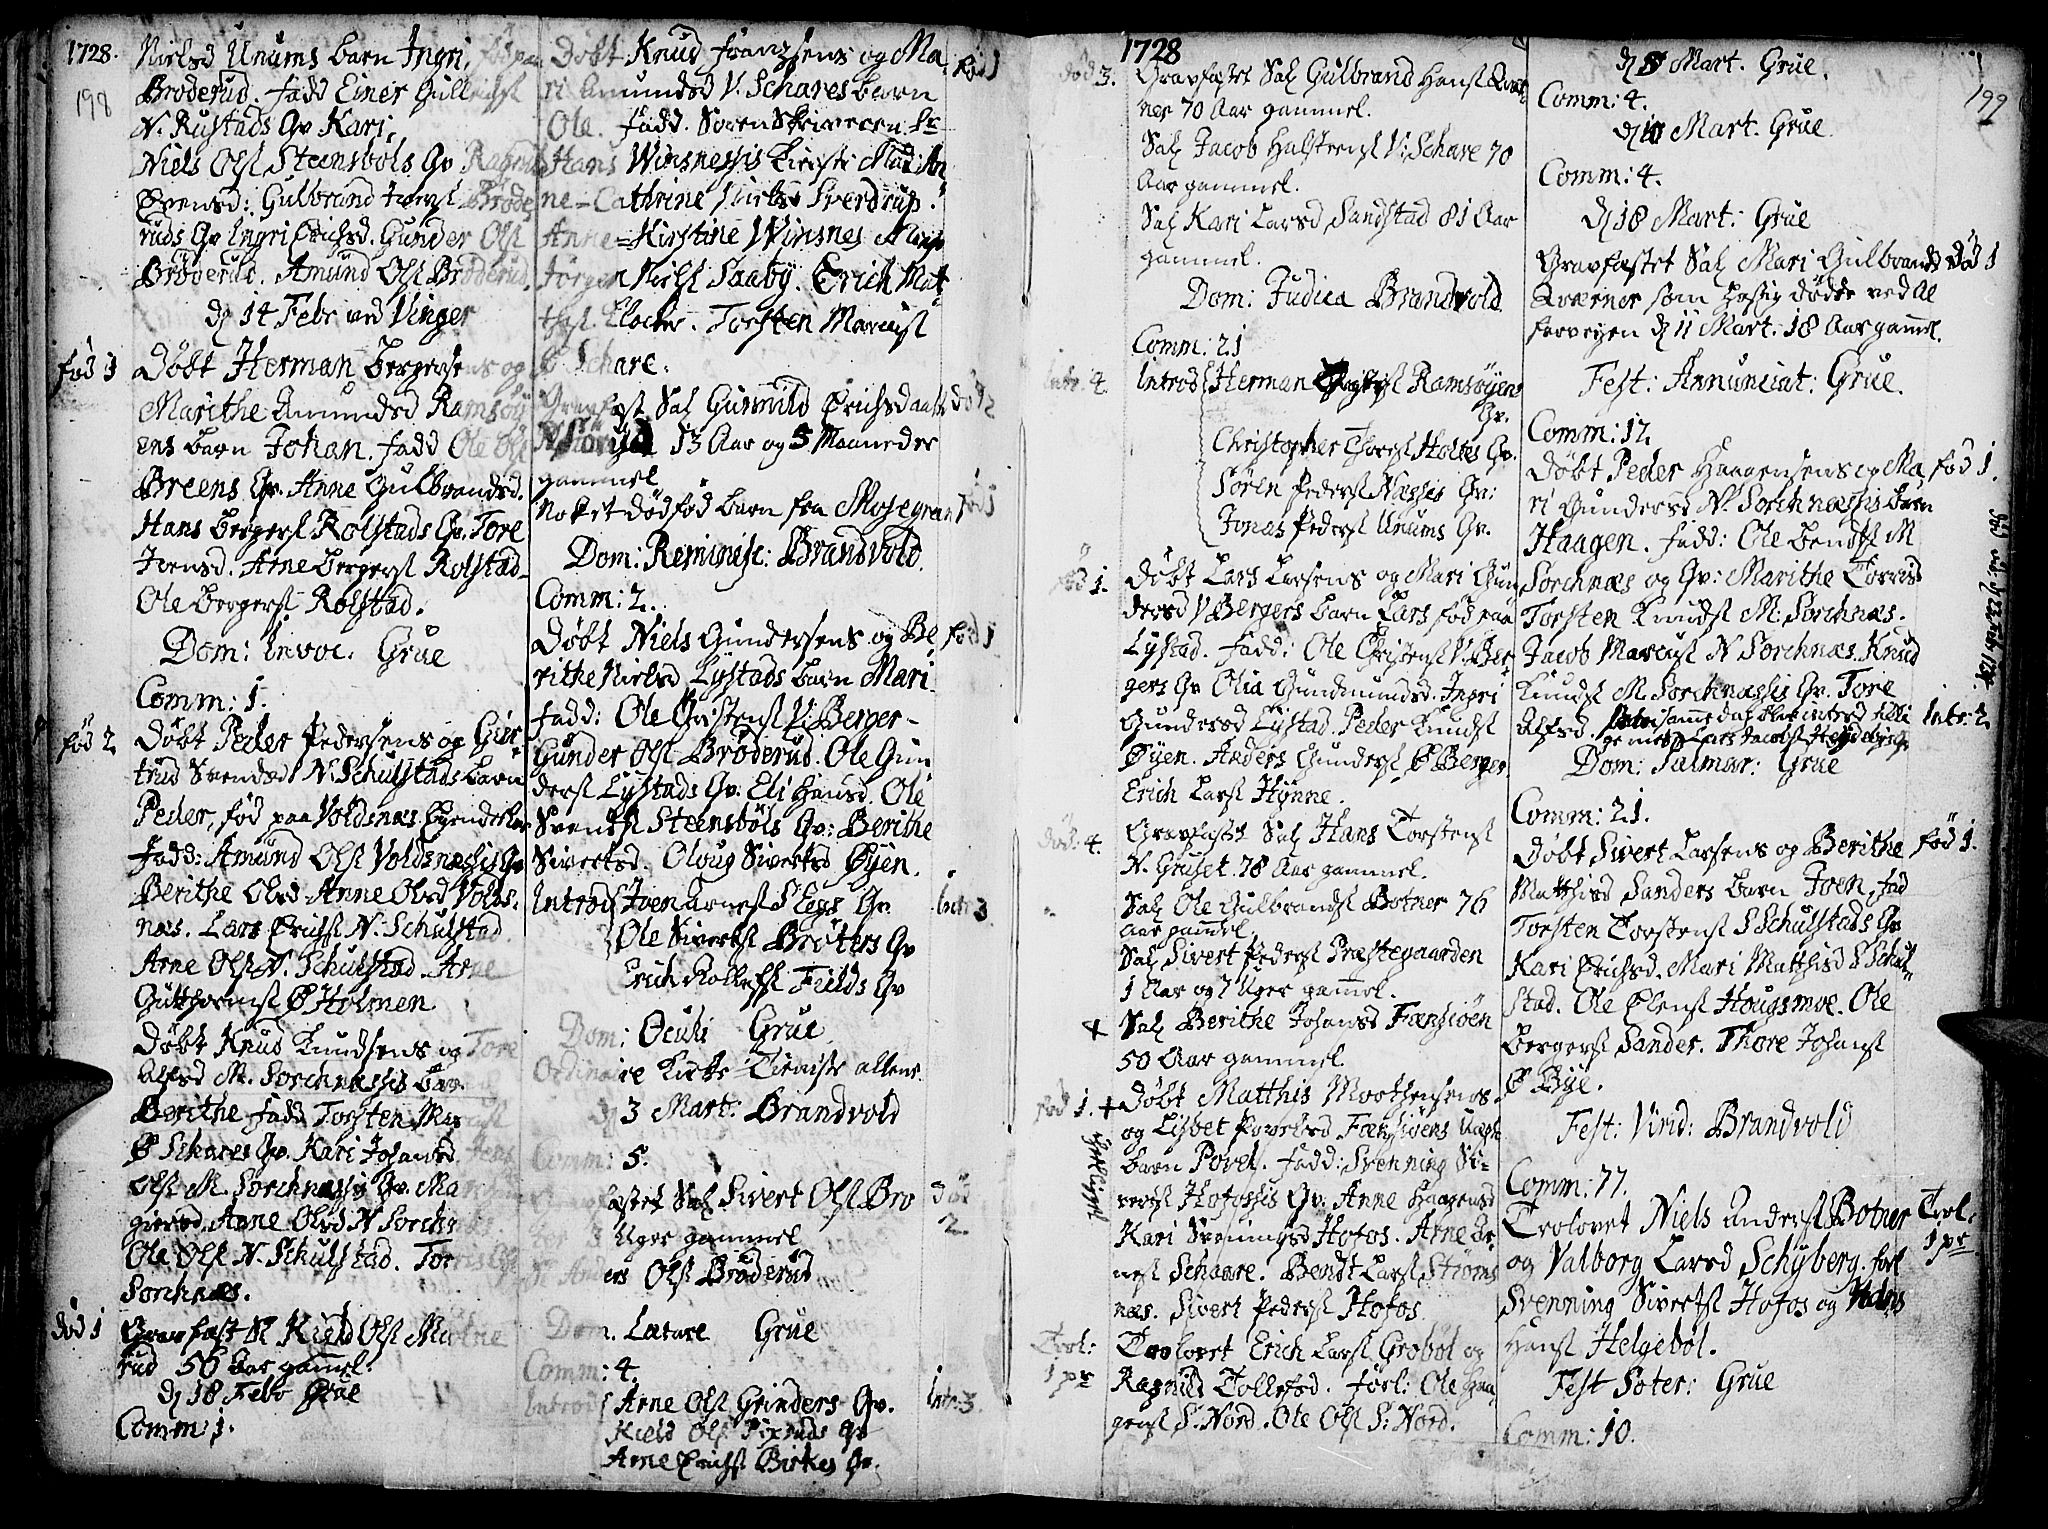 1728.
198
Nielsd Unums barn Ingri, fød paa
Bröderud. fadd Einer Gulbrandsl
N. Rustads Qv Kari,
Niels Olsl Steensbøls Qv Ragnild
Svensd: Gulbrand Joensl Brøde
ruds Qv Ingri Erichsd. Gunder Olsl
Bröderud. Amund Olsl Bröderud.
dȷ 14 Febr ved Vinger
fød 1
Døbt Herman Bergersens og
Marithe Amundsd Ramsöÿ
ens barn Johan. fadd Ole Olsl
Breens Qv. Anne Gulbrandsd.
Hans Bergersl Rolstads Qv. Tore
Joensd. Arne Bergersl Rolstad
Ole Bergersl Rolstad.
Dom: Invoc. Grue
Comm: 1.
fød 2
Döbt Peder Pedersens og Gür-
trud Svendsd N. Schulstads barn
Peder, fød paa Voldsnæs
Fadd: Amund Olsl Voldsnæssis Qv
Berithe Olsd Anne Olsd Volds-
næs. Lars Erichsl N. Schulstad
Arne Olsl N. Schulstad. Arne
Gutthormsl Ø Holmen
Døbt Knud Knudsens og Tore
Alfsd M. Sorchnæssis barn
Berithe fadd Torsten Mar
Ø Schares Qv. Kari Johansd
Olsl M. Sorchnæssis Qv. Ma
giersd. Anne Olsd N Sorchn
Ole Olsl N. Schulstad. Tor
Sorchnæs.
död 1
Gravfæst Sl Kield Olsl
rud 56 Aar gammel.
dȷ 18 Febr Grue
Comm: 1.
Döbt Knud Franzsens og Ma
fød 1
ri Amundsd V. Schares barn
Ole. Fadd. Sorenskriveren Sr
Hans Winsnessis Kierste Mad: An
ne-Cathrine Nielsd Sverdrup.
Anne-Kirstine Winsnes
Jörgen Nielsl Saaby. Erich Mat
thisl. Klocker. Torsten Marcusl
Ø Schare.
Gravfæst Sal Gunnild Erichsdaatter
död 2
13 Aar og 5 Maaneder
gammel
Nok et dödföd barn fra Mosegran
fød 1
Dom: Reminisc: Brandvold.
Comm: 2.
Døbt Niels Gundersens og Be
fød 1
rithe Nielsd Lystads barn Mari
Fadd: Ole Christensl V. Berger-
Günder Olsl Bröderud. Ole Gun
dersl Lystads Qv: Eli Hansd. Ole
Svendsl Steensböls Qv: Berithe
Sivertsd. Oloug Sivertsd Øyen.
Introd Joen Arnesl S Eegs Qv
Intr. 3
Ole Sivertsl Bröters Qv
Erich Rolleffsl Fields Qv
Dom: Oculi Grue
Ordinaire Kirke-Tieniste allene.
dȷ 3 Mart: Brandvold
Comm: 5.
Gravfæstet Sal Sivert Olsl Bro
död
2
ter 3 Uger gammel
Sl Anders Olsl Bröderud
Dom. Lætare Grue
Comm: 4.
Introd Arne Olsl Grinders Qv.
Intr: 3.
Kield Olsl Pixruds Qv
Arne Erichsl Birkes Qv.
1728
död 3.
Gravfæstet Sal Gulbrand Hansl Qvær
ner 70 Aar gammel.
Sal Jacob Halstensl V. Schare 70
Aar gammel.
Sal Kari Larsd Sandstad 81 Aar
gammel.
Dom: Judica Brandvold
Comm: 21
Intr. 4.
Introd Herman Bergersl Ramsøyens
Qv.
Christopher Thoresl Holtes Qv.
Sören Pedersl Næssis Qv:
Jonas Pedersl Unums Qv.
fød 1.
Döbt Lars Larsens og Mari Gun
dersd V Bergers barn Lars fød paa
Lystad. Fadd: Ole Christensl V. Ber-
gers Qv Olia Gundmundsd. Ingri
Gundersd Lystad. Peder Knudsl
Øyen. Anders Gundersl Ø Berger
Erich Larsl Hynne.
død. 4.
Gravfæstet Sal Hans Torstensl
N. Gruset. 78 Aar gammel.
Sal Ole Gulbrandsl Botner 76
Aar gammel.
Sal Sivert Pedersl Præstegaarden
1 Aar og 7 Uger gammel.
+ Sal Berithe Johansd Fænsiöen
50 Aar gammel.
fød 1. + Döbt Matthis Moothensens
og Lisbet Povelsd Fænsiöens Uægte
barn Povel. Fadd: Svenning Si-
versl Hofossis Qv: Anne Haagensd
Kari Svenningsd Hofos. Arne Ar-
nesl Schaare. Bendt Larsl Ströms
næs. Sivert Pedersl Hofos
Trol:
1 pr
Trolovet Erich Larsl Grobøl og
Ragnild Tollefsd. Forl: Ole Haa
gensl S. Nord. Ole Olsl S. Nord.
199
dȷ 8 Mart. Grue.
Comm: 4.
dȷ 10 Mart. Grue.
Comm: 4.
dȷ 18 Mart: Grue
Gravfæstet Sal Mari Gulbrandsd
död 1
Qværner som hastig dødde ved Al
farveyen dȷ 11 Mart. 18 Aar gammel.
Fest: Annunciat: Grue.
Comm: 17.
Døbt Peder Haagensens og Ma
fød 1.
ri Gundersd N. Sorchnæssis barn
Haagen. Fadd: Ole Bendtsl M
Sorchnæs og Qv: Marithe Torrisd
Torsten Knudsl M. Sorchnæs.
Jacob Marcusl N Sorchnæs. Knud
Knudsl M. Sorchnæssis Qv. Tore
Alfsd. samme dag blev introd
Intr: 2
Dom: Palmar: Grue
Comm: 21.
Döbt Sivert Larsens og Berithe
fød 1.
Matthisd Sanders barn Joen. fad
Torsten Torstensl S Schulstads Qv
Kari Erichsd. Mari Matthisd S Schul-
stad. Ole Olensl Hougsmoe. Ole
Bergersl Sander. Thore Johansl
Ø Bye.
Fest: Virid: Brandvold
Comm: 77.
Trolovet Niels Andersl Botner
Trol:
1 pr
og Valborg Larsd Schyberg. forl
Svenning Sivertsl Hofos og Hans
Hansl Helgebøl.
Fest Soter: Grue
Comm: 10.